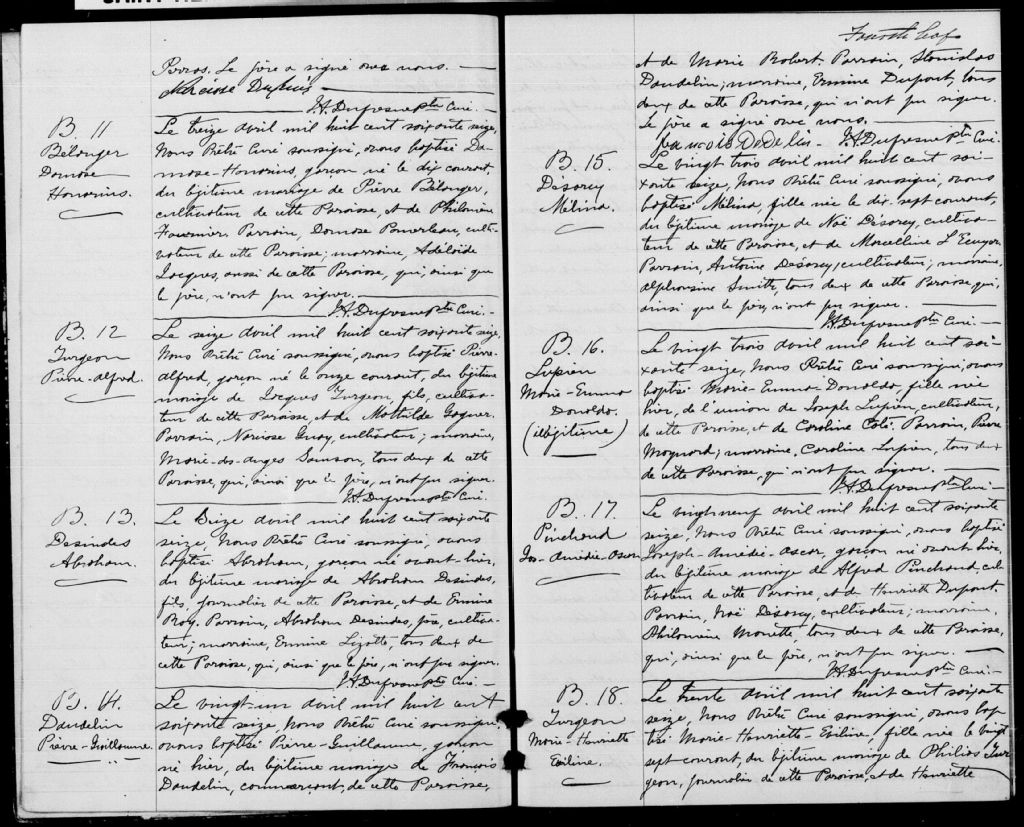 Perras. Le père a signé avec nous.
Narcisse Dupuis
J.A. Dufresne Ptre Curé.
B. 11
Bélanger
Damase
Honorius.
Le treize avril mil huit cent soixante seize,
Nous Prêtre Curé soussigné, avons baptisé Da-
mase-Honorius, garçon né le dix courant,
du légitime mariage de Pierre Bélanger,
cultivateur de cette Paroisse, et de Philomène
Fournier. Parrain, Damase cult-
ivateur de cette Paroisse; marraine, Adélaïde
Jacques, aussi de cette Paroisse, qui, ainsi que
le père, n'ont pu signer.
J.A. Dufresne Ptre Curé.
B. 12
Turgeon
Pierre-Alfred.
Le seize avril mil huit cent soixante seize,
Nous Prêtre Curé soussigné, avons baptisé Pierre-
Alfred, garçon né le onze courant, du légitime
mariage de Jacques Turgeon, fils, cultiva-
teur de cette Paroisse, et de Mathilde Gagner.
Parrain, Narcisse Guay, cultivateur; marraine,
Marie-des-Anges Samson, tous deux de cette
Paroisse, qui, ainsi que le père, n'ont pu signer.
J.A. Dufresne Ptre Curé.
B. 13.
Desindes
Abraham.
Le Seize avril mil huit cent soixante
seize, Nous Prêtre Curé soussigné, avons
baptisé Abraham, garçon né avant-hier,
du légitime mariage de Abraham Desindes,
fils, journalier de cette Paroisse, et de Ermine
Roy. Parrain, Abraham Desindes, père, cultiva-
teur; marraine, Ermine Lizotte; tous deux de
cette Paroisse, qui, ainsi que le père, n'ont pu signer.
J.A. Dufresne Ptre Curé.
B. 14.
Daudelin
Pierre-Guillaume.
Le vingt-un avril mil huit cent
soixante seize, Nous Prêtre Curé soussigné
avons baptisé Pierre-Guillaume, garçon
né hier, du légitime mariage de François
Daudelin, commerçant, de cette Paroisse,
Fourth leaf
et de Marie Robert. Parrain, Stanislas
Daudelin; marraine, Ermine Dupont, tous
deux de cette Paroisse, qui n'ont pu signer.
Le père a signé avec nous.
francois Dodelin J.A. Dufresne Ptre Curé.
B. 15.
Désorcy
Mélina.
Le vingt trois avril mil huit cent soi-
xante seize, Nous Prêtre Curé soussigné, avons
baptisé Mélina, fille née le dix-sept courant,
du légitime mariage de Noé Désorcy, cultiva-
teur de cette Paroisse, et de Marcelline L'Ecuyer.
Parrain, Antoine Désorcy, cultivateur; marraine,
Alphonsine Smith, tous deux de cette Paroisse qui,
ainsi que le père, n'ont pu signer.
J.A. Dufresne Ptre Curé.
B. 16.
Lupien
Marie-Emma
Donalda.
(illégitime)
Le vingt trois avril mil huit cent soi-
xante seize, Nous Prêtre Curé soussigné, avons
baptisé Marie-Emma-Donalda, fille née
hier, de l'union de Joseph Lupien, cultivateur,
de cette Paroisse, et de Caroline Coté. Parrain, Pierre
Maynard; marraine, Caroline Lupien, tous deux
de cette Paroisse, qui n'ont pu signer.
J.A. Dufresne Ptre Curé
B. 17.
Pinchaud
Jos-Amédée-Oscar
Le vingt-neuf avril mil huit cent soixante
seize, Nous Prêtre Curé soussigné, avons baptisé
Joseph-Amédée-Oscar, garçon né avant-hier,
du légitime mariage de Alfred Pinchaud, cul-
tivateur de cette Paroisse, et de Henriette Dupont.
Parrain, Noé Désorcy, cultivateur; marraine,
Philomène Monette, tous deux de cette Paroisse,
qui, ainsi que le père, n'ont pu signer.
J.A. Dufresne Ptre Curé.
B. 18.
Turgeon
Marie-Henriette
Exiline.
Le trente avril mil huit cent soixante
seize, Nous Prêtre Curé soussigné, avons bap-
tisé Marie-Henriette-Exiline, fille née le vingt
sept courant, du légitime mariage de Philias Tur-
geon, journalier de cette Paroisse, et de Henriette